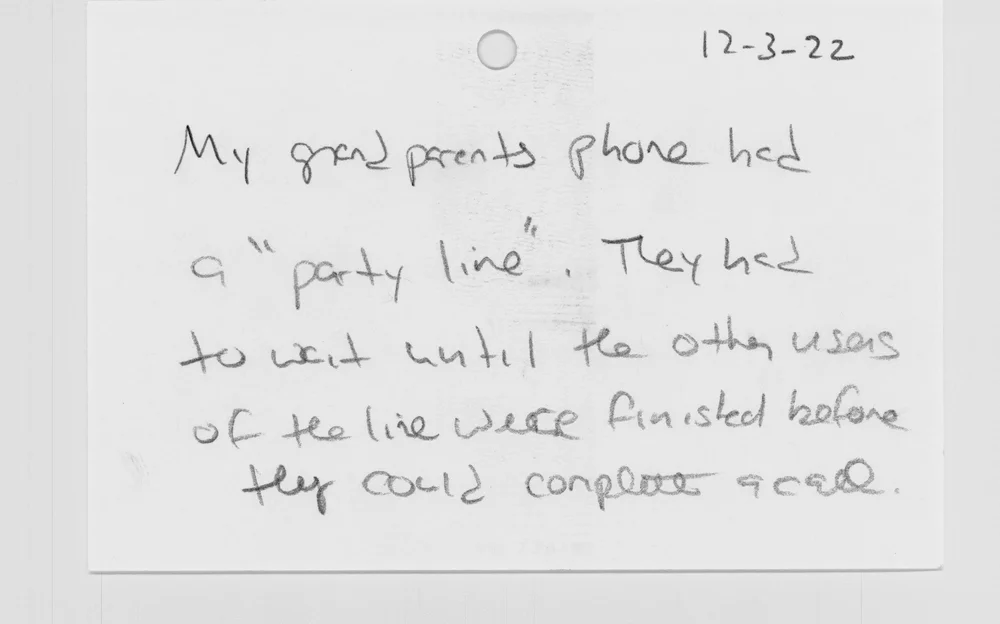 12-3-22
My grandparents phone had
a "party line". They had
to wait until the other users
of the line were finished before
they could complete a call.